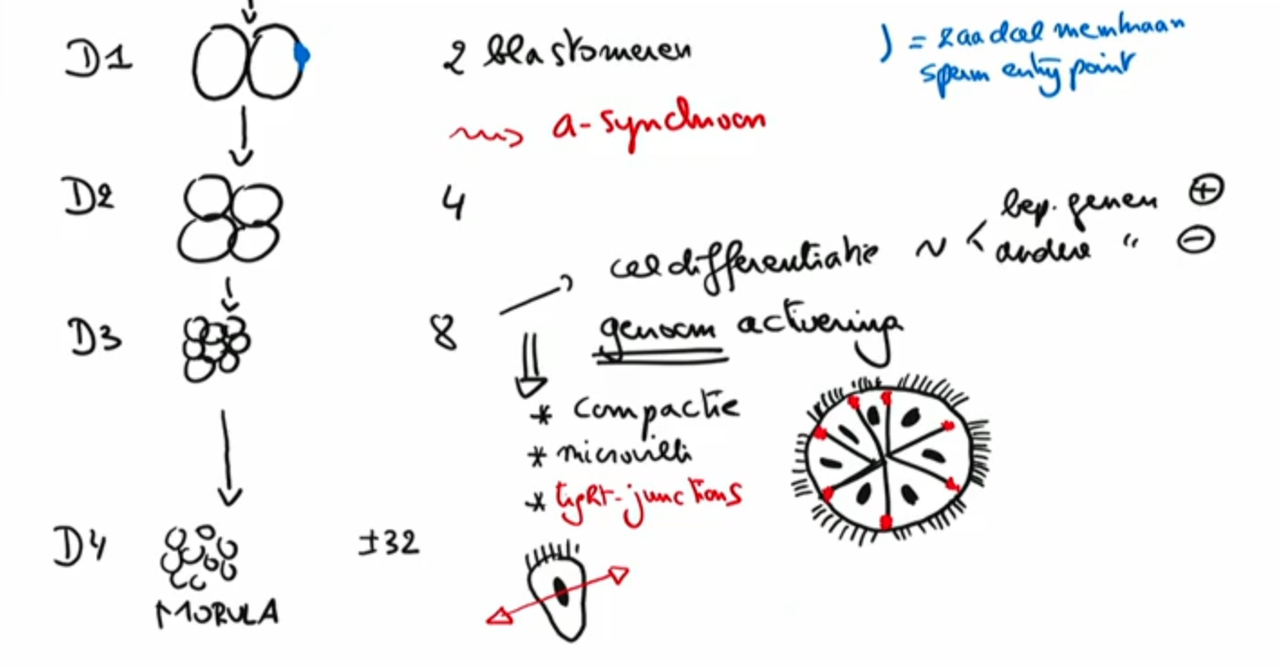 D1 2 blastomeren
) = zaadcel membraan
sperm entry point
a-synchroon
D2 4
bep. genen +
celdifferentiatie ~ < andere " -
D3 8
genoom activering
* compactie
* microvilli
* tight-junctions
D4 ±32
MORULA